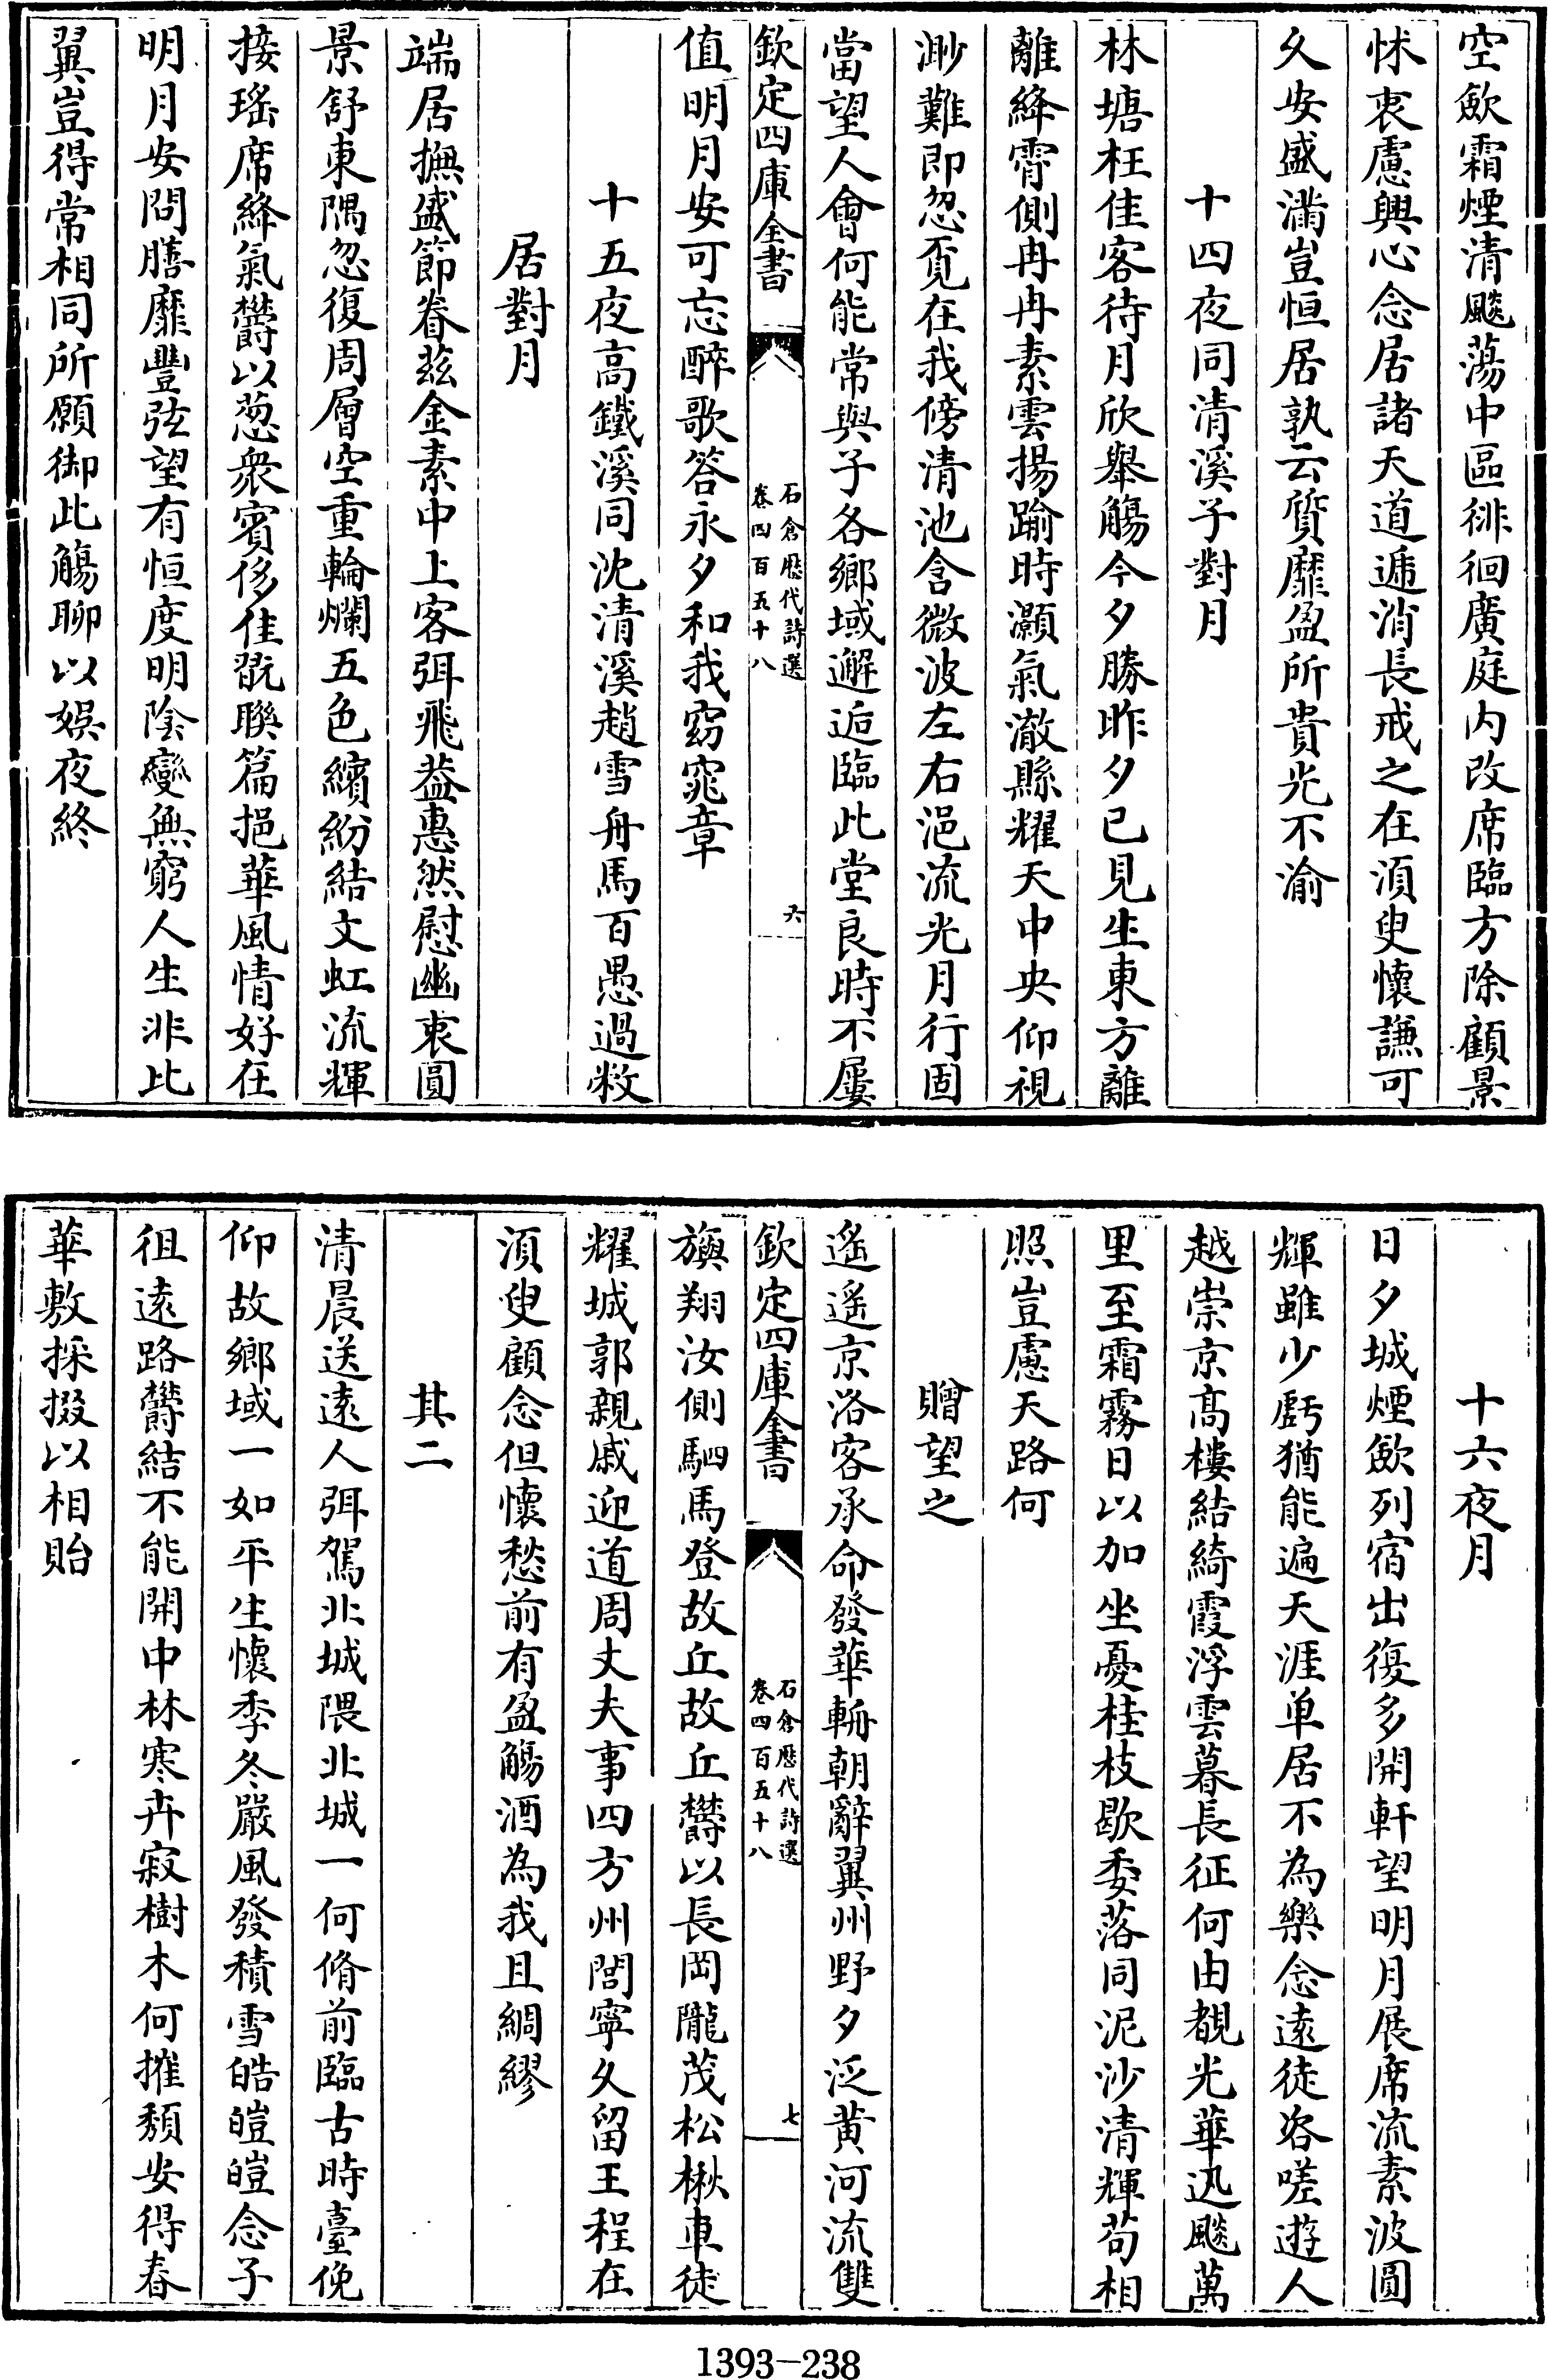 空歛霜煙清飈蕩中區徘徊廣庭内改席臨方除顧景
怵衷慮興心念居諸天道逓消長戒之在湏臾懷謙可
久安盛滿豈恒居孰云質靡盈所貴光不渝
十四夜同清溪子對月
林塘枉佳客待月欣舉觴今夕勝昨夕已見生東方離
離絳霄側冉冉素雲揚踰時灝氣澈縣耀天中央仰視
渺難即忽覔在我傍清池含微波左右浥流光月行固
當望人會何能常與子各鄉域邂逅臨此堂良時不屢
欽定四庫全書
石倉歴代詩選
卷四百五十八
六
值明月安可忘醉歌答永夕和我窈窕章
十五夜高鐵溪同沈清溪趙雪舟馬百愚過敉
居對月
端居撫盛節眷兹金素中上客弭飛葢惠然慰幽衷圓
景舒東隅忽復周層空重輪爛五色繽紛結文虹流輝
接瑤席絳氣欝以葱衆賓侈佳翫聯篇挹華風情好在
明月安問膳靡豐弦望有恒度明陰變無窮人生非比
翼豈得常相同所願御此觴聊以娛夜終
十六夜月
日夕城煙歛列宿出復多開軒望明月展席流素波圓
輝雖少虧猶能遍天涯单居不為樂念遠徒咨嗟遊人
越崇京髙樓結綺霞浮雲暮長征何由覩光華迅飈萬
里至霜霧日以加坐憂桂枝歇委落同泥沙清輝苟相
照豈慮天路何
贈望之
遙遙京洛客承命發華輈朝辭翼州野夕泛黄河流雙
欽定四庫全書
石倉歴代詩選
卷四百五十八
七
旟翔汝側駟馬登故丘故丘欝以長岡隴茂松楸車徒
耀城郭親戚迎道周丈夫事四方州閭寧久留王程在
湏臾顧念但懷愁前有盈觴酒為我且綢繆
其二
清晨送遠人弭駕北城隈北城一何脩前臨古時臺俛
仰故鄉域一如平生懷季冬嚴風發積雪皓皚皚念子
徂遠路欝結不能開中林寒卉寂樹木何摧頽安得春
華敷採掇以相貽
1393-238